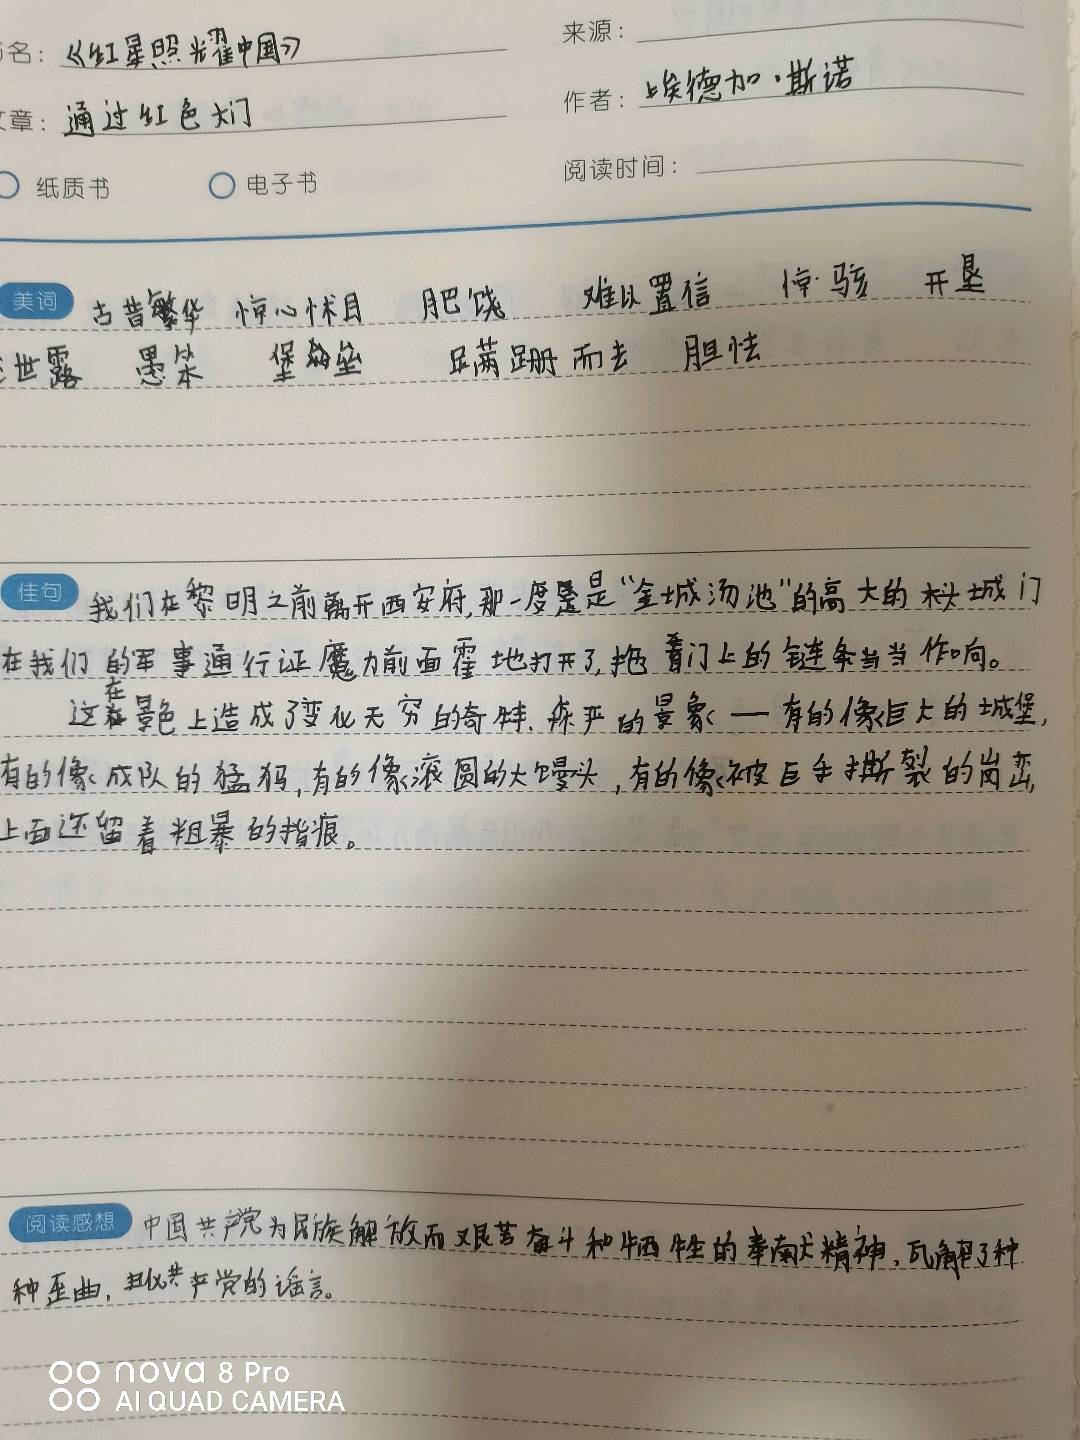 名：《红星照耀中国》
来源：
章：通过红色大门
作者：埃德加·斯诺
纸质书 电子书
阅读时间：
美词 古昔繁华 惊心怵目 肥饶 难以置信 惊骇 开垦
世露 愚笨 堡垒 蹒跚而去 胆怯
佳句 我们在黎明之前离开西安府,那一度是"金城汤池"的高大的木头城门
在我们的军事通行证魔力前面霍地打开了,拖着门上的链条当当作响。
这在景色上造成了变化无穷的奇特、森严的景象——有的像巨大的城堡,
有的像成队的猛犸,有的像滚圆的大馒头,有的像被巨手撕裂的岗峦,
上面还留着粗暴的指痕。
阅读感想 中国共产党为民族解放而艰苦奋斗和牺牲的奉献精神,瓦解了种
种歪曲,丑化共产党的谣言。
nova 8 Pro
AI QUAD CAMERA